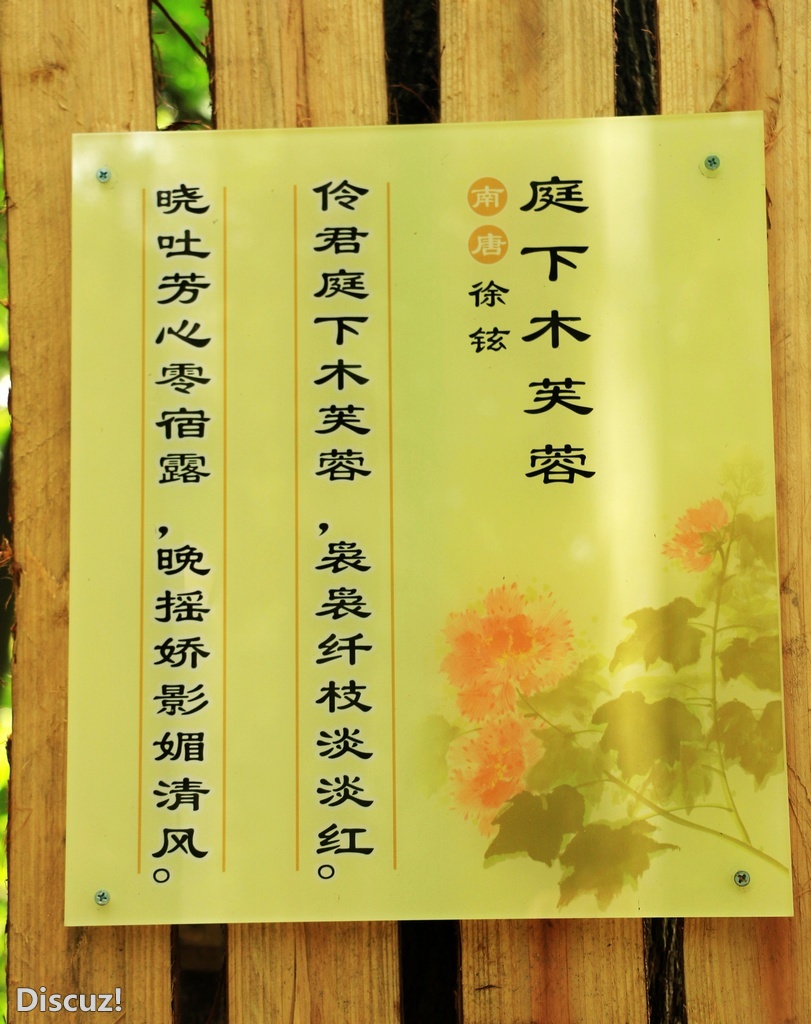 庭下木芙蓉
南唐 徐铉
伶君庭下木芙蓉，袅袅纤枝淡淡红。
晓吐芳心零宿露，晚摇娇影媚清风。
Discuz!